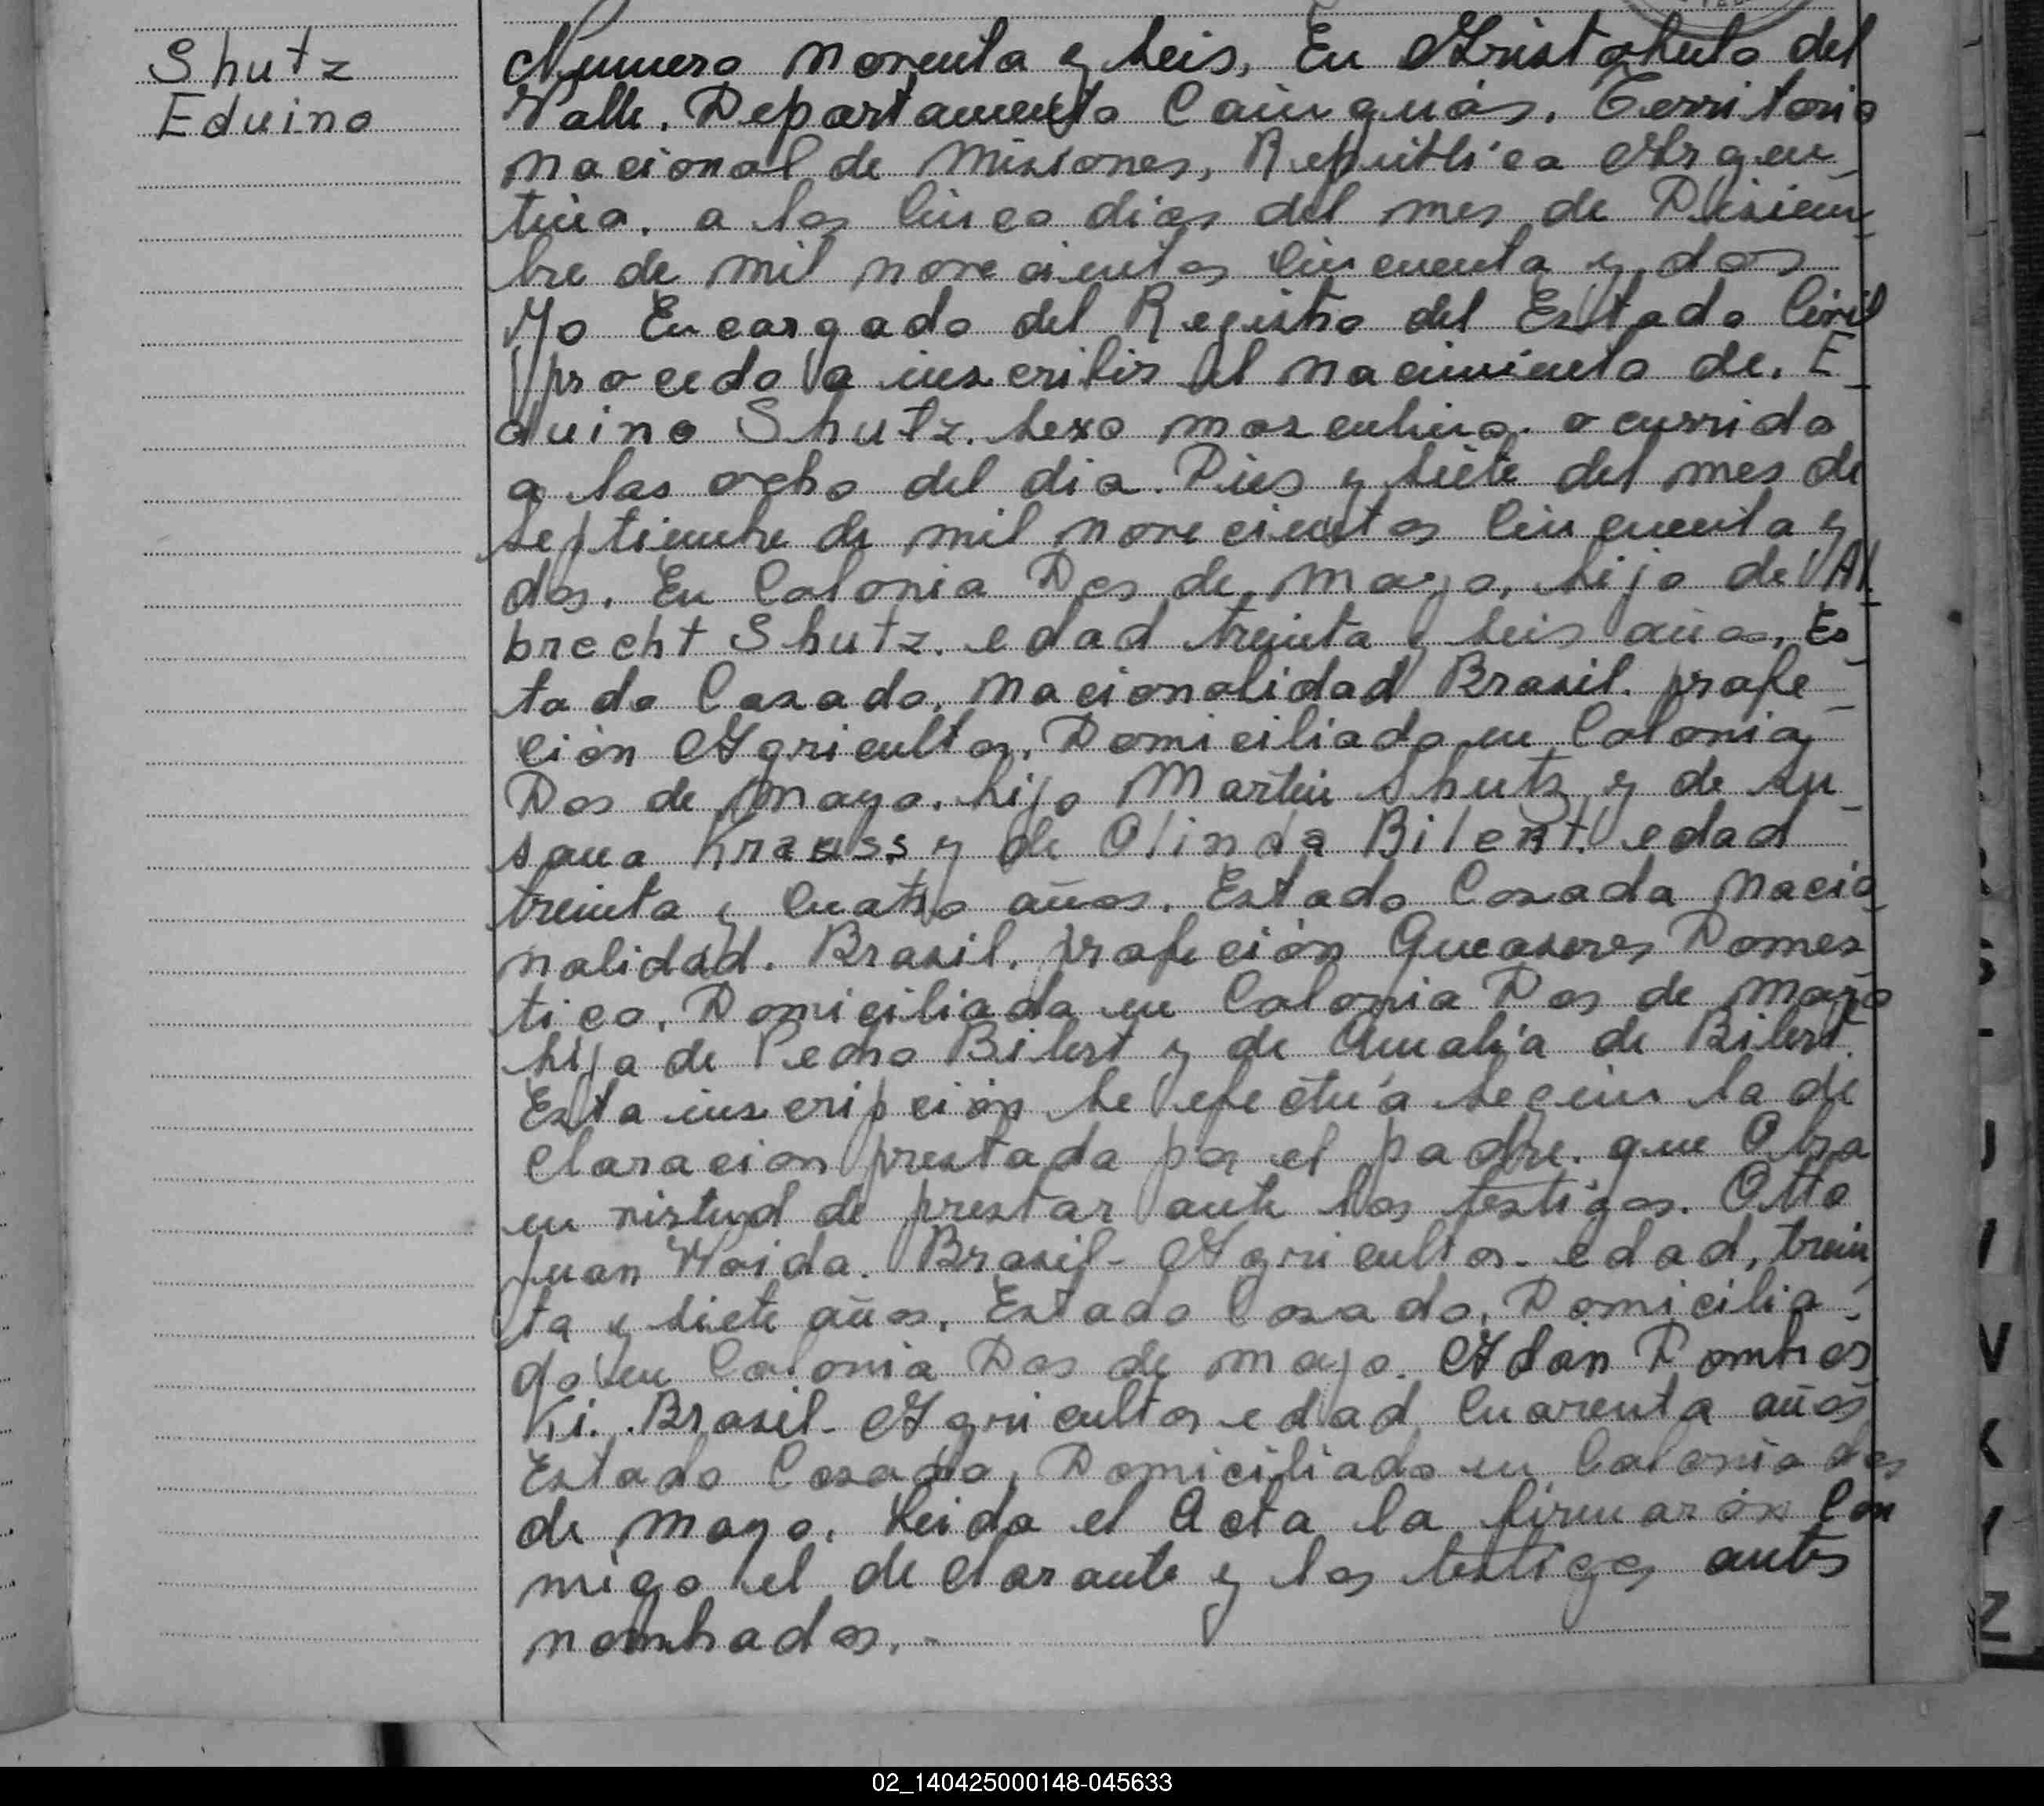 Shutz
Eduino
Numero noventa y seis, En Aristobulo del
Valle. Departamento Cainguás. Territorio
nacional de Misiones, República Argen_
tina. a los Cinco dias del mes de Disiem_
bre de mil novecientos Cincuenta y dos
Yo Encargado del Registro del Estado Civil
procedo a inscribir el nacimiento de. E_
duino Shutz. sexo masculino. ocurrido
a las ocho del dia. Dies y siete del mes de
septiembre de mil novecientos Cincuenta y
dos. En Colonia Dos de Mayo. hijo de Al_
brecht Shutz. edad treinta y seis años, Es_
tado Casado. Nacionalidad Brasil. profe_
ción Agricultor. Domiciliado en Colonia
Dos de Mayo. hijo Martin Shutz y de Su_
sana Krauss y de Olinda Bilert. edad
treinta y Cuatro años. Estado Casada Nacio_
nalidad. Brasil. profeción Queaseres Domes_
tico. Domiciliada en Colonia Dos de Mayo
hija de Pedro Bilert y de Amalia de Bilert.
Esta inscripción se efectúa según la de
claracion prestada por el padre. que Obra
en virtud de prestar ante los testigos. Otto
Juan Woida. Brasil- Agricultor- edad, trein_
ta y siete años. Estado Casado. Domicilia_
do en Colonia Dos de mayo. Adán Dombros
Ki. Brasil- Agricultor edad Cuarenta años
Estado Casado, Domiciliado en Colonia dos
de Mayo. Leida el Acta la firmarón Con
migo el declarante y los testigos antes
nombrados.-
02_140425000148-045633